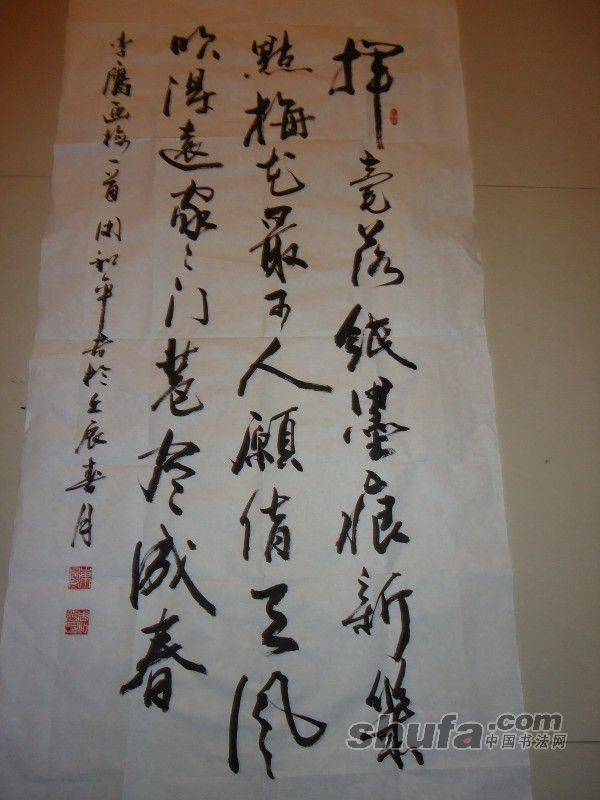 揮毫落紙墨痕新幾
點梅花最可人願借天風
吹得遠家々门巷尽成春
李膺画梅一首 周和平书於壬辰春月
shufa.com
中国书法网